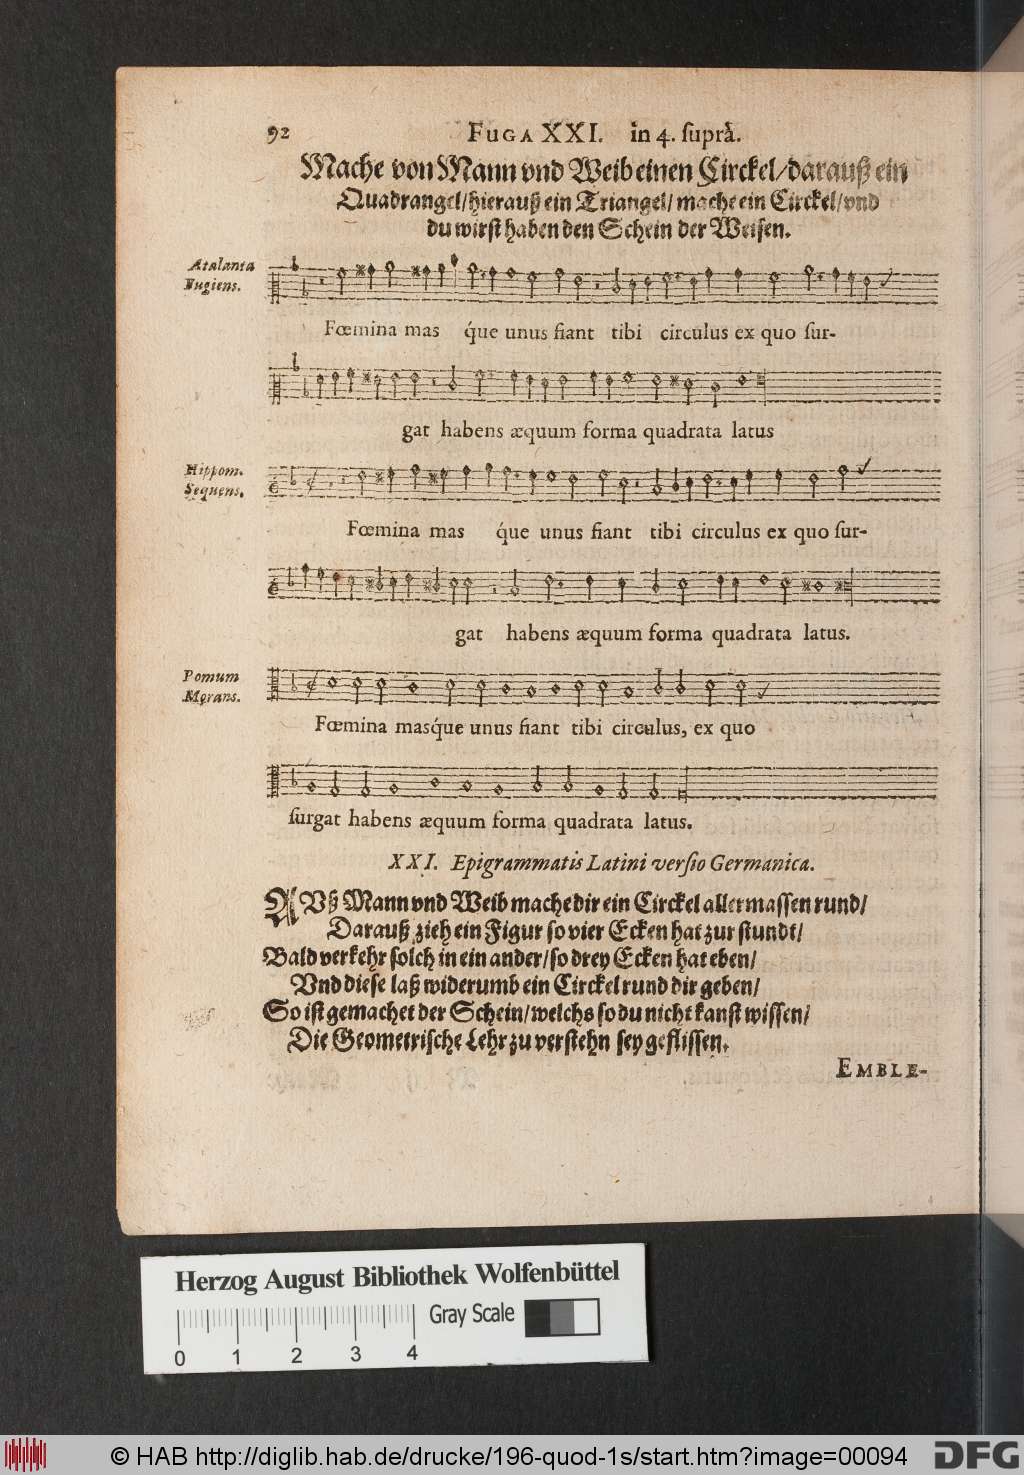 92
FUGA XXI. in 4. ſuprà.
Mache von Mann vnd Weib einen Circkel/darauß ein
Quadrangel/hierauß ein Triangel/mache ein Circkel/vnd
du wirſt haben den Schein der Weiſen.
Atalanta
Fugiens.
Fœmina mas q́ue unus fiant tibi circulus ex quo ſur-
gat habens æquum forma quadrata latus
Hippom.
Sequens.
Fœmina mas q́ue unus fiant tibi circulus ex quo ſur-
gat habens æquum forma quadrata latus.
Pomum
Morans.
Fœmina masq́ue unus fiant tibi circulus, ex quo
ſurgat habens æquum forma quadrata latus.
XXI. Epigrammatis Latini verſio Germanica.
AVß Mann vnd Weib mache dir ein Circkel allermaſſen rund/
Darauß zieh ein Figur ſo vier Ecken hat zur ſtundt/
Bald verkehr ſolch in ein ander/ſo drey Ecken hat eben/
Vnd dieſe laß widerumb ein Circkel rund dir geben/
So iſt gemachet der Schein/welchs ſo du nicht kanſt wiſſen/
Die Geometriſche Lehr zu verſtehn ſey gefliſſen.
EMBLE-
Herzog August Bibliothek Wolfenbüttel
Gray Scale
0 1 2 3 4
© HAB http://diglib.hab.de/drucke/196-quod-1s/start.htm?image=00094
DFG